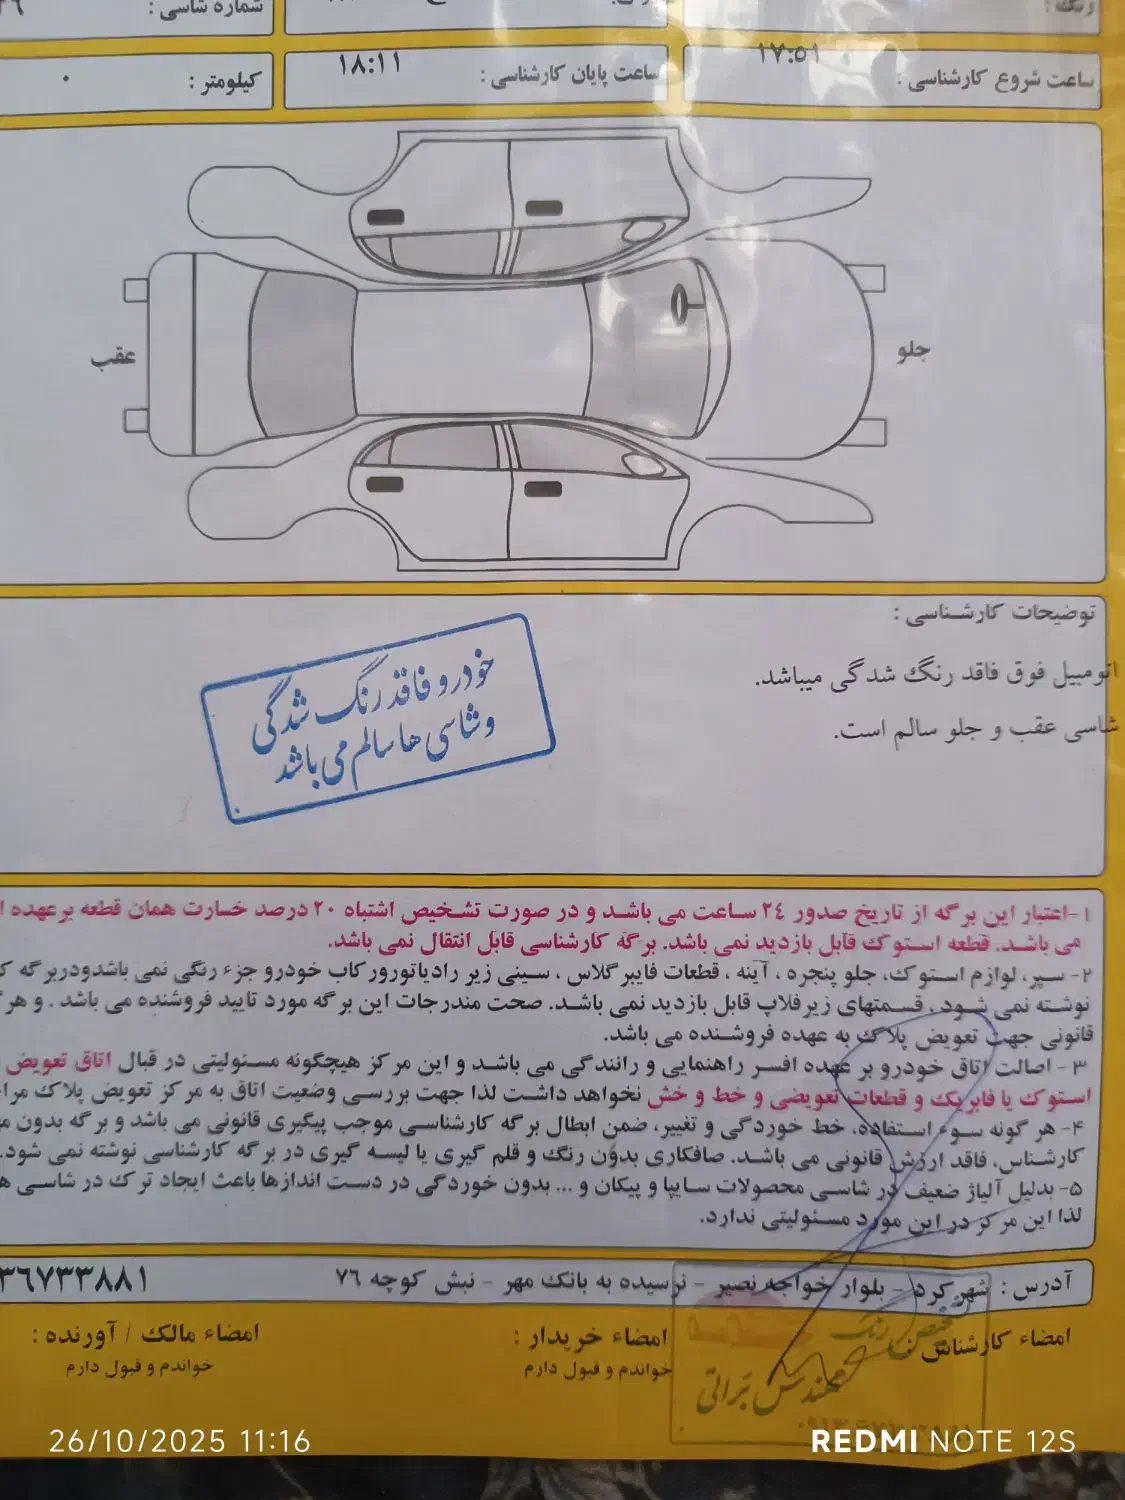 رنگ :
شماره شاسی :
ساعت شروع کارشناسی : ۱۷:۵۱
ساعت پایان کارشناسی : ۱۸:۱۱
کیلومتر : ۰
جلو
عقب
توضیحات کارشناسی :
اتومبیل فوق فاقد رنگ شدگی میباشد.
شاسی عقب و جلو سالم است.
خودرو فاقد رنگ شدگی
و شاسی ها سالم می باشد
۱-اعتبار این برگه از تاریخ صدور ۲۴ ساعت می باشد و در صورت تشخیص اشتباه ۲۰ درصد خسارت همان قطعه برعهده
می باشد. قطعه استوک قابل بازدید نمی باشد. برگه کارشناسی قابل انتقال نمی باشد.
۲- سپر، لوازم استوک، جلو پنجره ، آینه ، قطعات فایبرگلاس ، سینی زیر رادیاتورورکاب خودرو جزء رنگی نمی باشدودربرگه
نوشته نمی شود . قسمتهای زیرفلاپ قابل بازدید نمی باشد. صحت مندرجات این برگه مورد تایید فروشنده می باشد . و
قانونی جهت تعویض پلاک به عهده فروشنده می باشد.
۳ - اصالت اتاق خودرو بر عهده افسر راهنمایی و رانندگی می باشد و این مرکز هیچگونه مسئولیتی در قبال اتاق تعویض
استوک یا فابریک و قطعات تعویضی و خط و خش نخواهد داشت لذا جهت بررسی وضعیت اتاق به مرکز تعویض پلاک
۴- هر گونه سوء استفاده، خط خوردگی و تغییر، ضمن ابطال برگه کارشناسی موجب پیگیری قانونی می باشد و برگه بدون
کارشناس، فاقد ارزش قانونی می باشد. صافکاری بدون رنگ و قلم گیری یا لیسه گیری در برگه کارشناسی نوشته نمی شود.
۵- بدلیل آلیاژ ضعیف در شاسی محصولات سایپا و پیکان و ... بدون خوردگی در دست اندازها باعث ایجاد ترک در شاسی
لذا این مرکز در این مورد مسئولیتی ندارد.
آدرس : شهرکرد - بلوار خواجه نصیر - نرسیده به بانک مهر - نبش کوچه ۷۶
۳۶۷۳۳۸۸۱
امضاء کارشناس :
امضاء خریدار :
خواندم و قبول دارم
امضاء مالک / آورنده :
خواندم و قبول دارم
تشخیص رنگ
مهندس براتی
26/10/2025 11:16
REDMI NOTE 12S